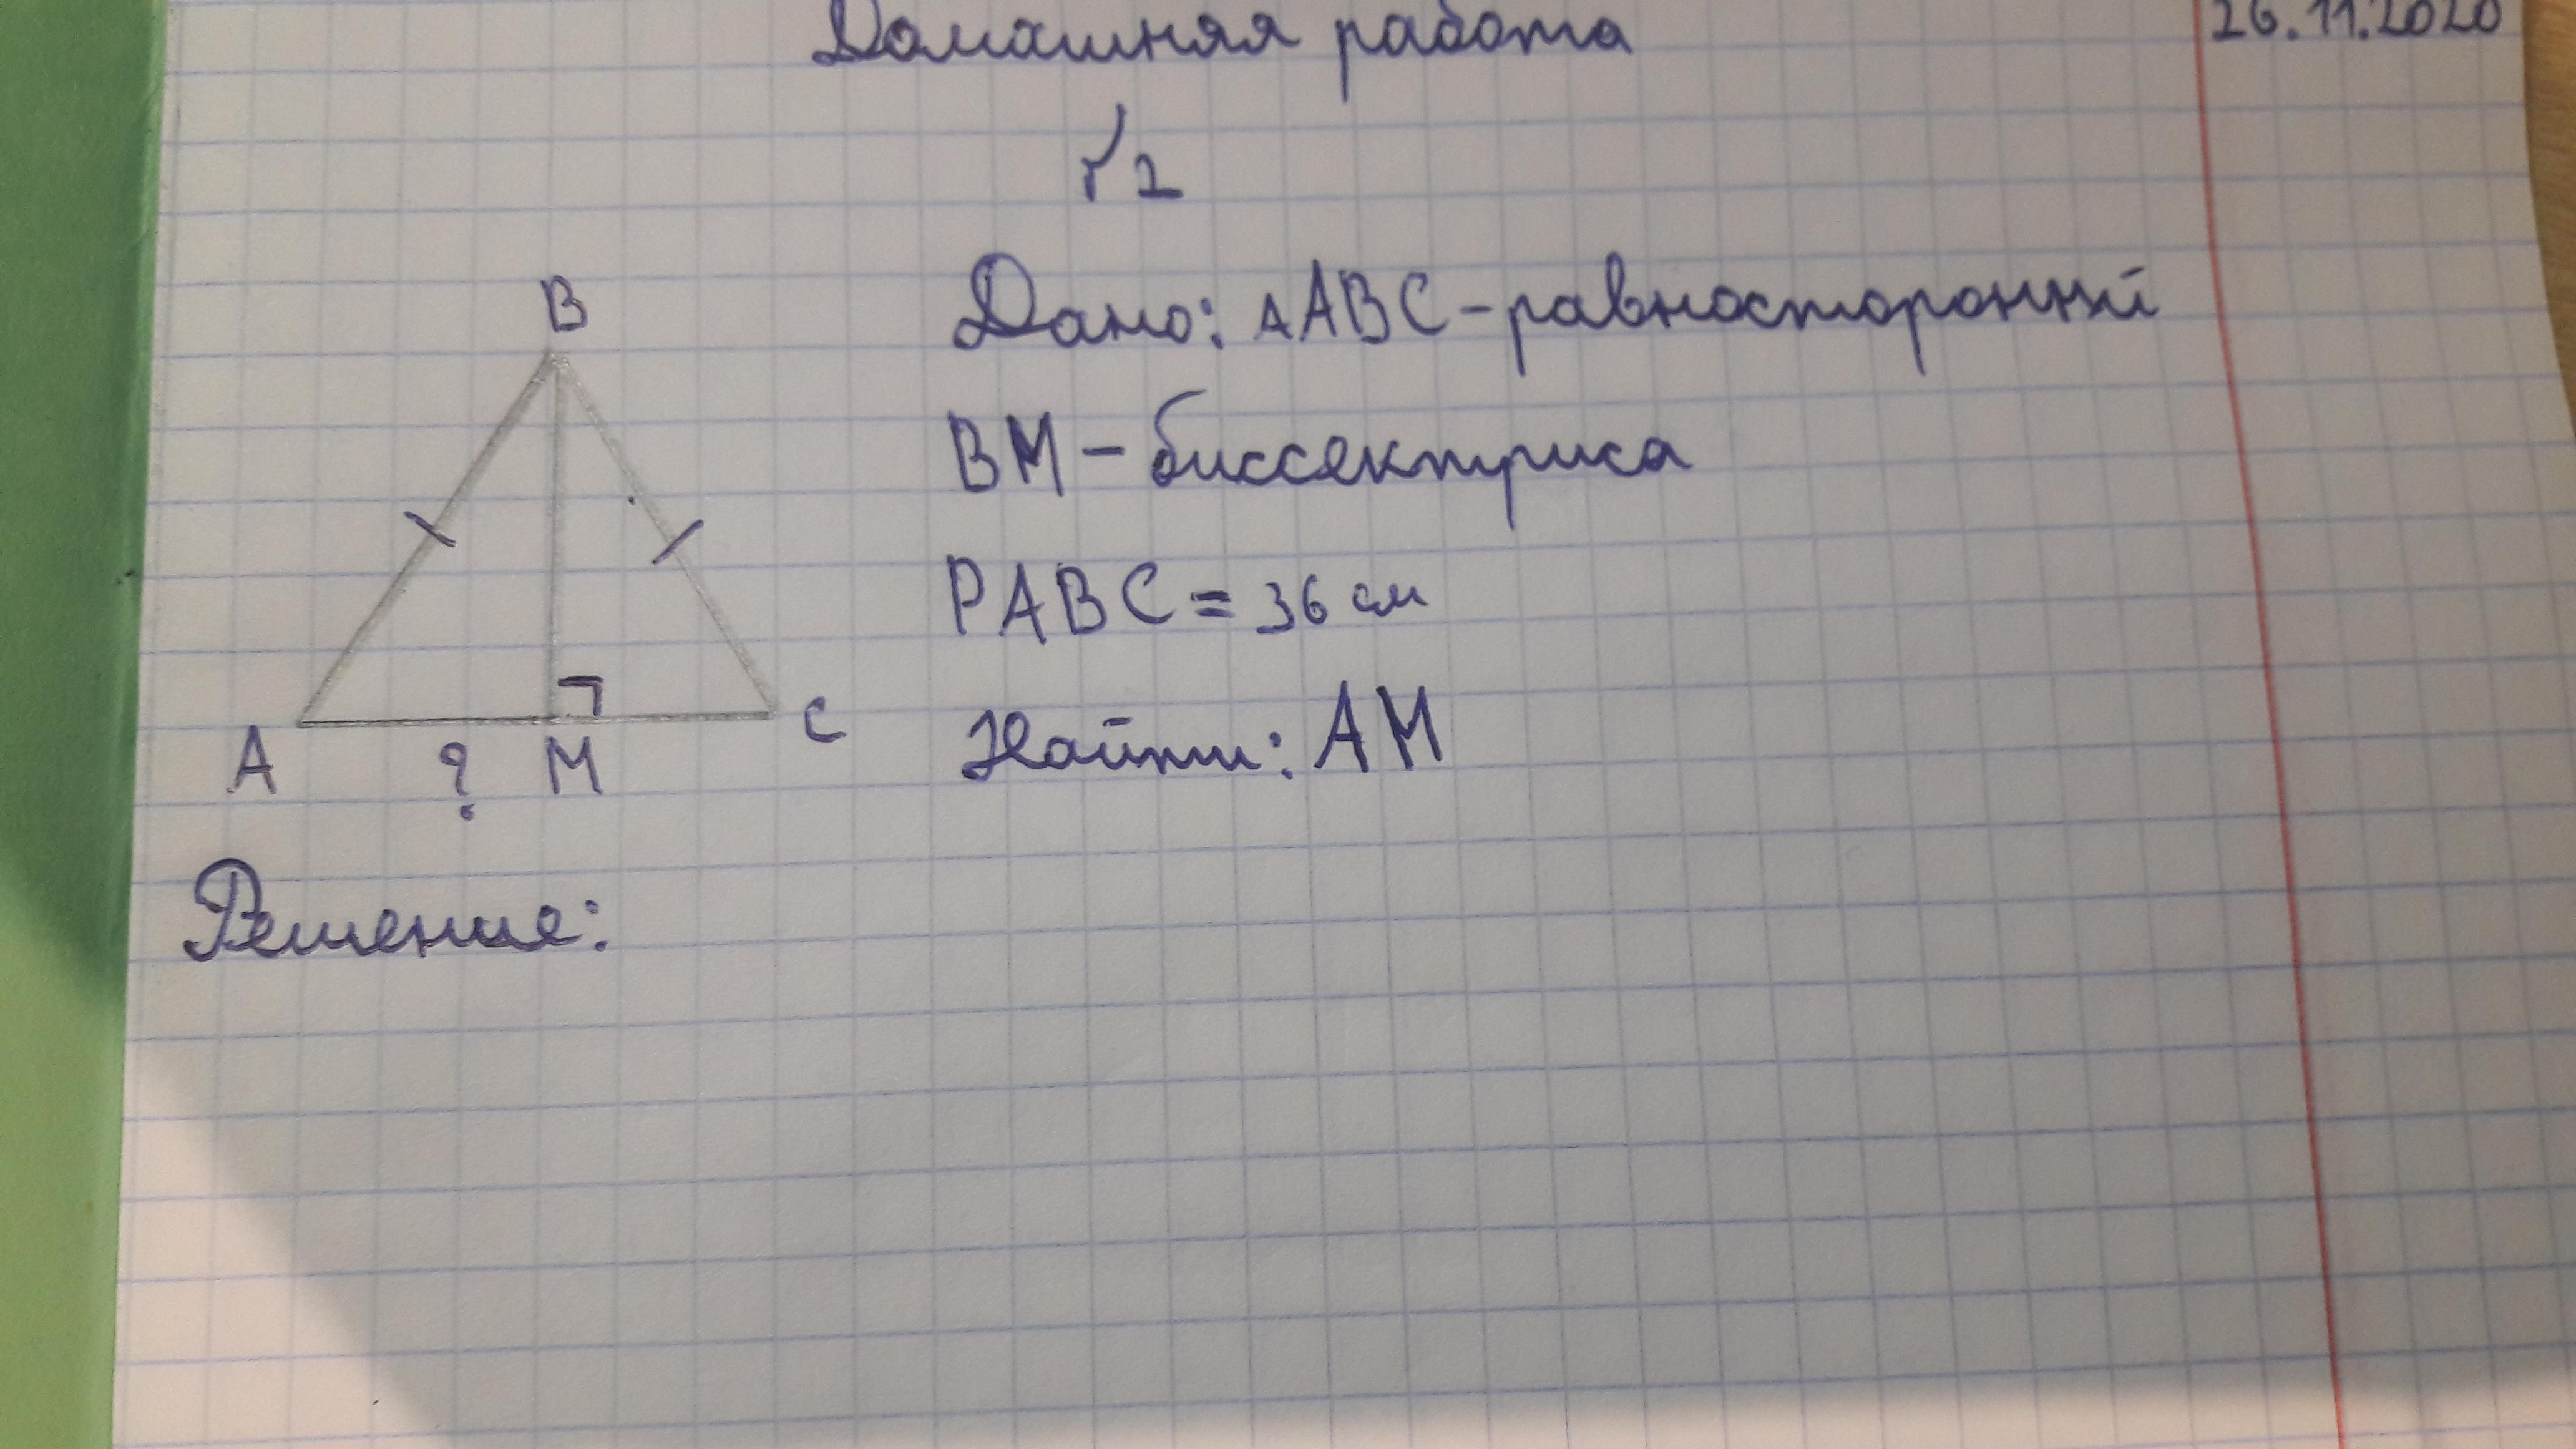 Домашняя работа
26.11.2020
√2
B
Дано: ΔABC - равносторонний
BM - биссектриса
PABC = 36 см
A ? M C
Найти: AM
Решение: